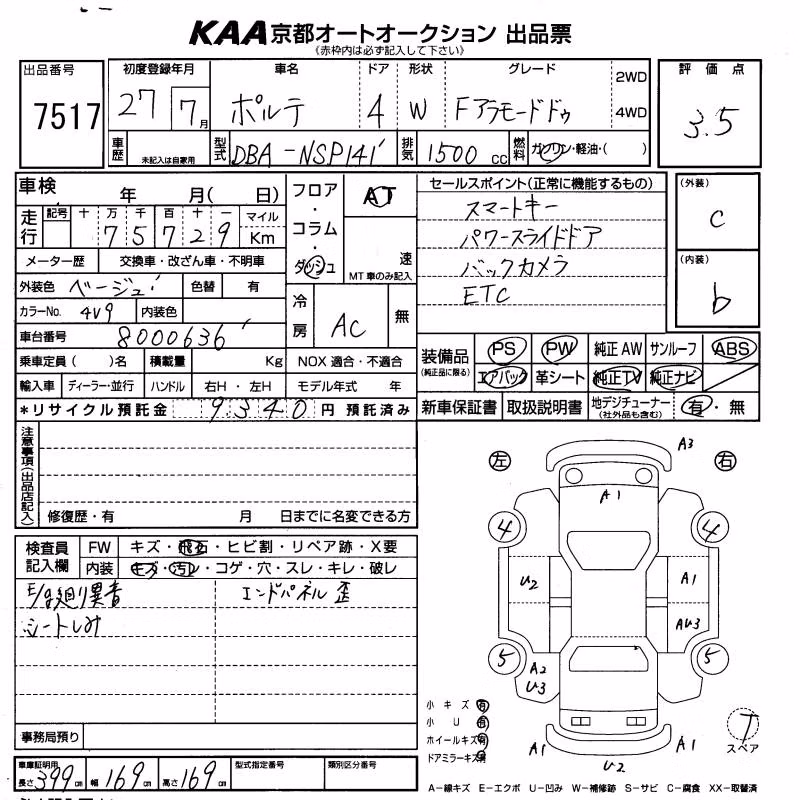 KAA 京都オートオークション 出品票
《赤枠内は必ず記入して下さい》
出品番号 初度登録年月 車名 ドア 形状 グレード 2WD 評価点
7517 27 7月 ポルテ 4 W Fアラモードドゥ 4WD 3.5
車歴 未記入は自家用 型式 DBA-NSP141 排気 1500 CC 燃料 ガソリン・軽油・( )
車検 年 月( 日) フロア・コラム・ダッシュ AT セールスポイント(正常に機能するもの) (外装)
走行 記号 十 万 千 百 十 一 マイル Km スマートキー C
7 5 7 2 9 パワースライドドア
メーター歴 交換車・改ざん車・不明車 速 MT車のみ記入 バックカメラ (内装)
外装色 ベージュ 色替 有 冷房 AC 無 ETC b
カラーNo. 4V9 内装色
車台番号 8000636
乗車定員( )名 積載量 Kg NOX 適合・不適合 装備品 (純正品に限る) PS PW 純正AW サンルーフ ABS
輸入車 ディーラー・並行 ハンドル 右H・左H モデル年式 年 エアバック 革シート 純正TV 純正ナビ
*リサイクル預託金 9340円 預託済み 新車保証書 取扱説明書 地デジチューナー (社外品も含む) 有・無
注意事項(出品店記入)
修復歴・有 月 日までに名変できる方
左 右 A3
A1
4 4
U2 A1
AU3
5 5
A2
U3
A1 U2 A1
検査員記入欄 FW キズ・飛石・ヒビ割・リペア跡・X要
内装 キズ・汚レ・コゲ・穴・スレ・キレ・破レ
E/g廻り異音 エンドパネル歪
シートしみ
小キズ 有
小U 有
ホイールキズ 有
ドアミラーキズ 有
T
スペア
事務局預り
車庫証明用 長さ 399cm 幅 169cm 高さ 169cm 型式指定番号 類別区分番号
A-線キズ E-エクボ U-凹み W-補修跡 S-サビ C-腐食 XX-取替済